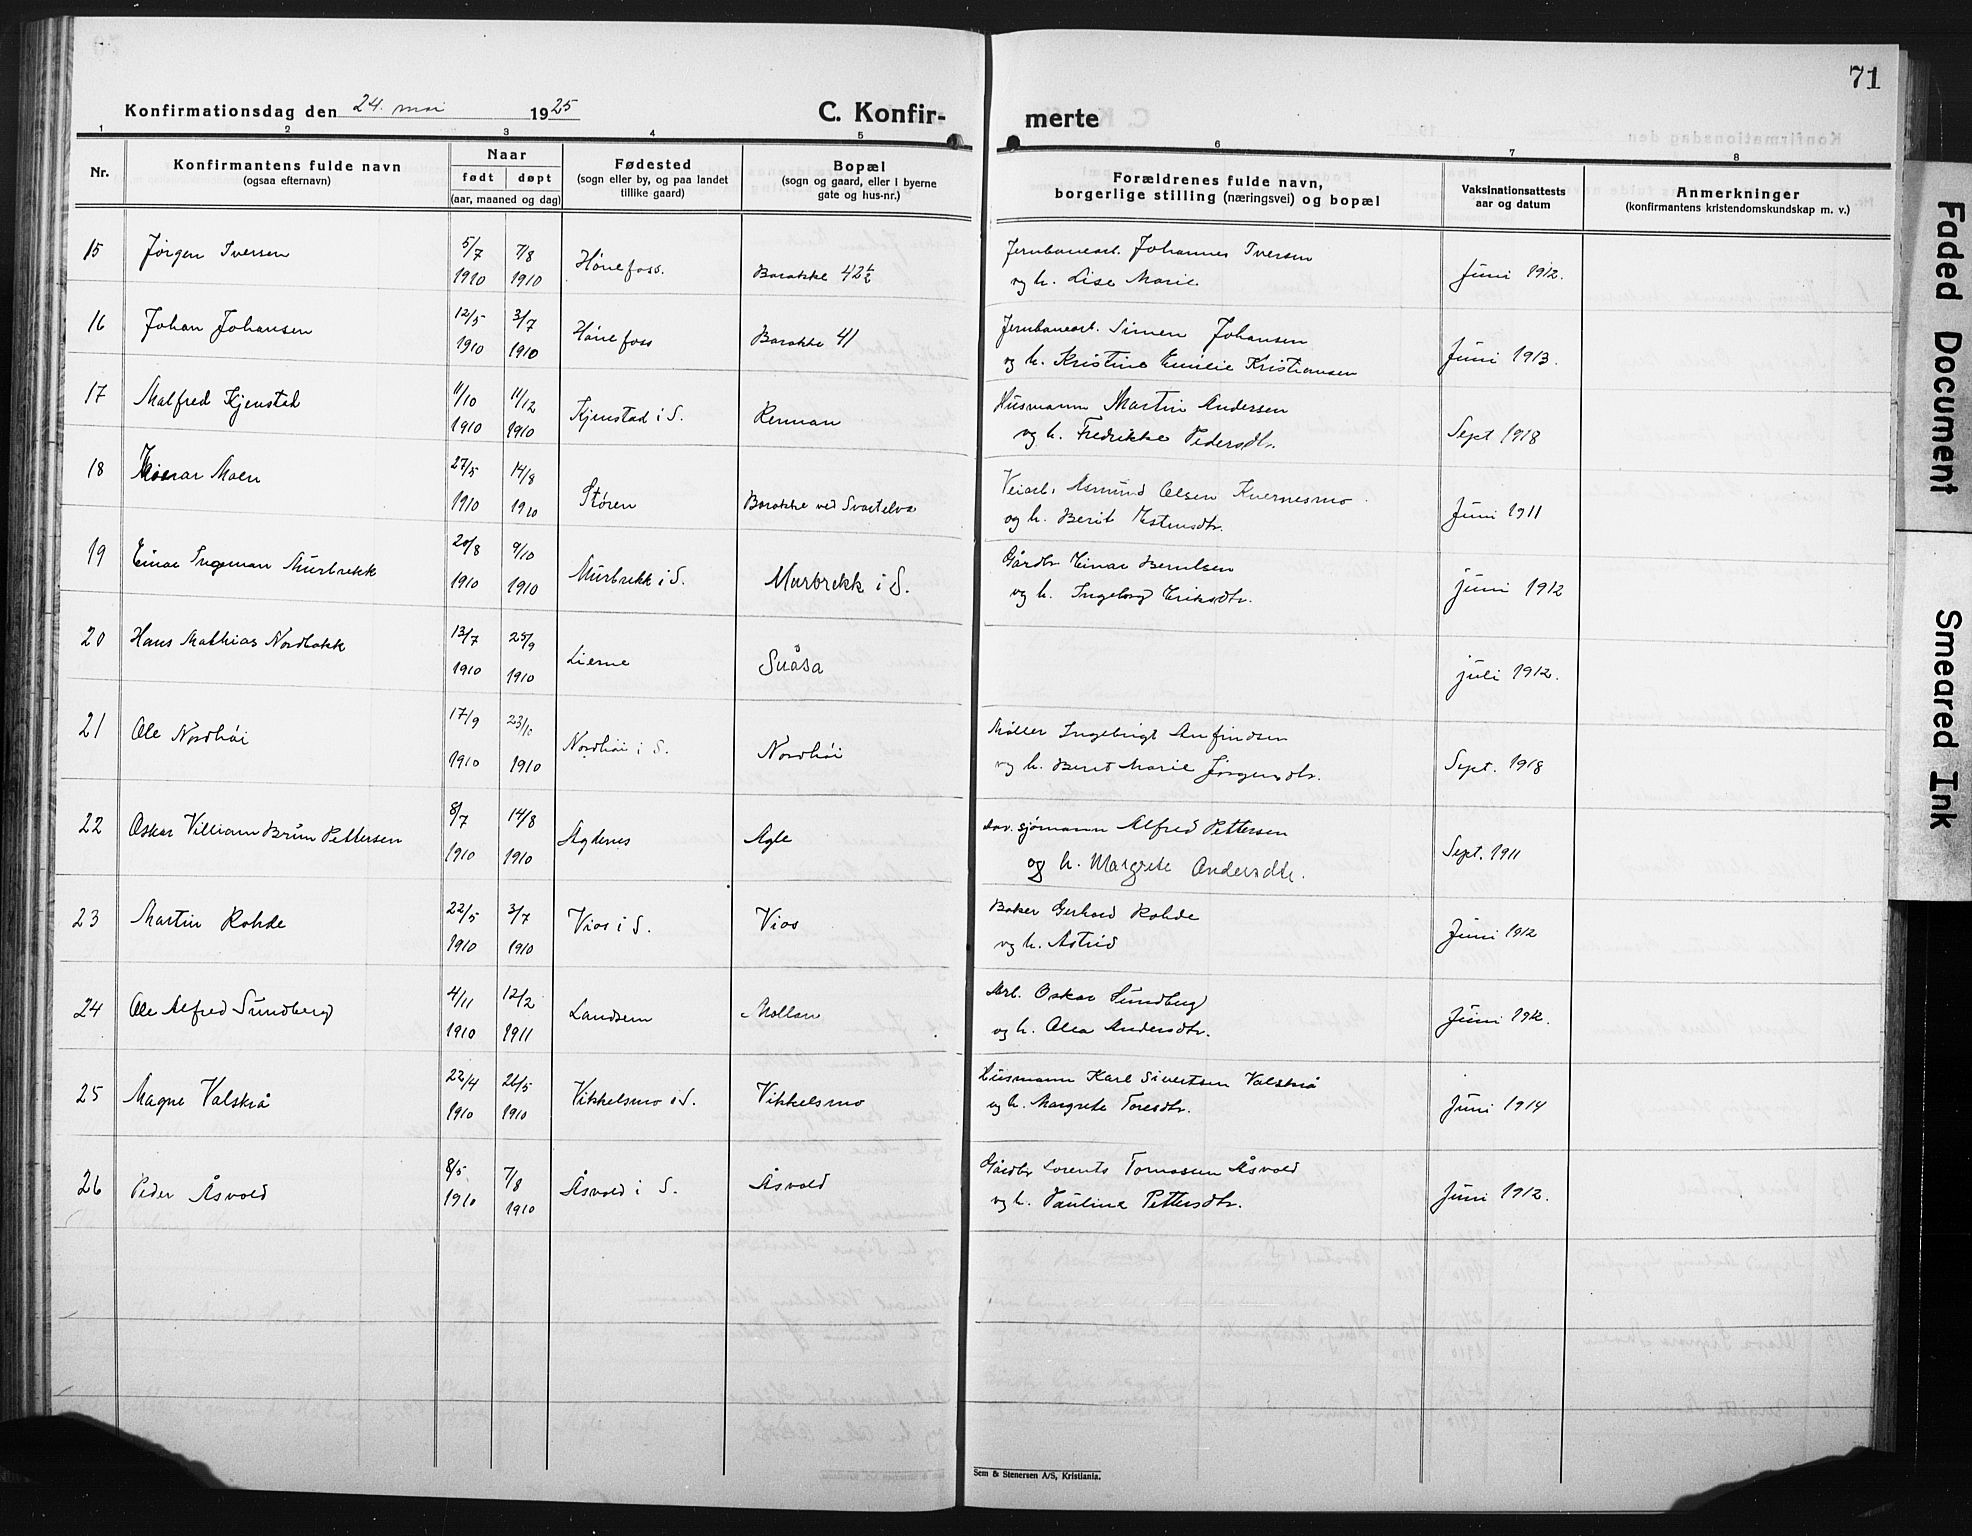 71
Konfirmationsdag den 24. mai 1925
C. Konfir-
merte
1 2 3 4 5 6 7 8
Nr.
Konfirmantens fulde navn
(ogsaa efternavn)
Naar
født døpt
(aar, maaned og dag)
Fødested
(sogn eller by, og paa landet
tillike gaard)
Bopæl
(sogn og gaard, eller i byerne
gate og hus-nr.)
Forældrenes fulde navn,
borgerlige stilling (næringsvei) og bopæl
Vaksinationsattests
aar og datum
Anmerkninger
(konfirmantens kristendomskundskap m. v.)
15 Jørgen Iversen 5/7 1910 7/8 1910 Hønefoss. Barakke 42 1/2 Jernbanearb. Johannes Iversen
og h. Lise Marie Juni 1912.
16 Johan Johansen 12/5 1910 3/7 1910 Hønefoss Barakke 41 Jernbanearb. Simen Johansen
og h. Kristine Emilie Kristiansen Juni 1913.
17 Malfred Kjenstad 11/10 1910 11/12 1910 Kjenstad i S. Renman Husmann Martin Andersen
og h. Fredrikke Pedersdtr. Sept 1918
18 Moen 27/5 1910 14/8 1910 Støren Barakke ved Svartelva Veiarb. Asmund Olsen Kvernesmo
og h. Berit Estensdtr. Juni 1911
19 Einar Ingeman Murbrekk 20/8 1910 9/10 1910 Murbrekk i S. Murbrekk i S. Gårdbr Einar Berntsen
og h. Ingeborg Eriksdtr. juni 1912
20 Hans Mathias Nordbakk 13/7 1910 25/9 1910 Lierne Snåsa juli 1912.
21 Ole Nordhöi 17/9 1910 23/10 1910 Nordhöi i S. Nordhöi Møller Ingebrigt Anfindsen
og h. Berit Marie Jørgensdtr. Sept. 1918
22 Oskar Villiam Brun Pettersen 8/7 1910 14/8 1910 Agdenes Agle sjømann Alfred Pettersen
og h. Margrete Andersdtr. Sept. 1911
23 Martin Rohde 22/5 1910 3/7 1910 Vios i S. Vios Baker Gerhard Rohde
og h. Astrid Juni 1912
24 Ole Alfred Sundberg 4/11 1910 12/2 1911 Landsem Mollan Arb. Oskar Sundberg
og h. Olea Andersdtr. Juni 1912.
25 Magne Valskrå 22/4 1910 26/5 1910 Vikkelsmo i S. Vikkelsmo Husmann Karl Sivertsen Valskrå
og h. Margrete Toresdtr. Juni 1914
26 Peder Åsvold 8/5 1910 7/8 1910 Åsvold i S. Åsvold Gårdbr Lorents Tomassen Åsvold
og h. Pauline Pettersdtr. Juni 1912.
Sem & Stenersen A/S, Kristiania.
Faded Document
Smeared Ink